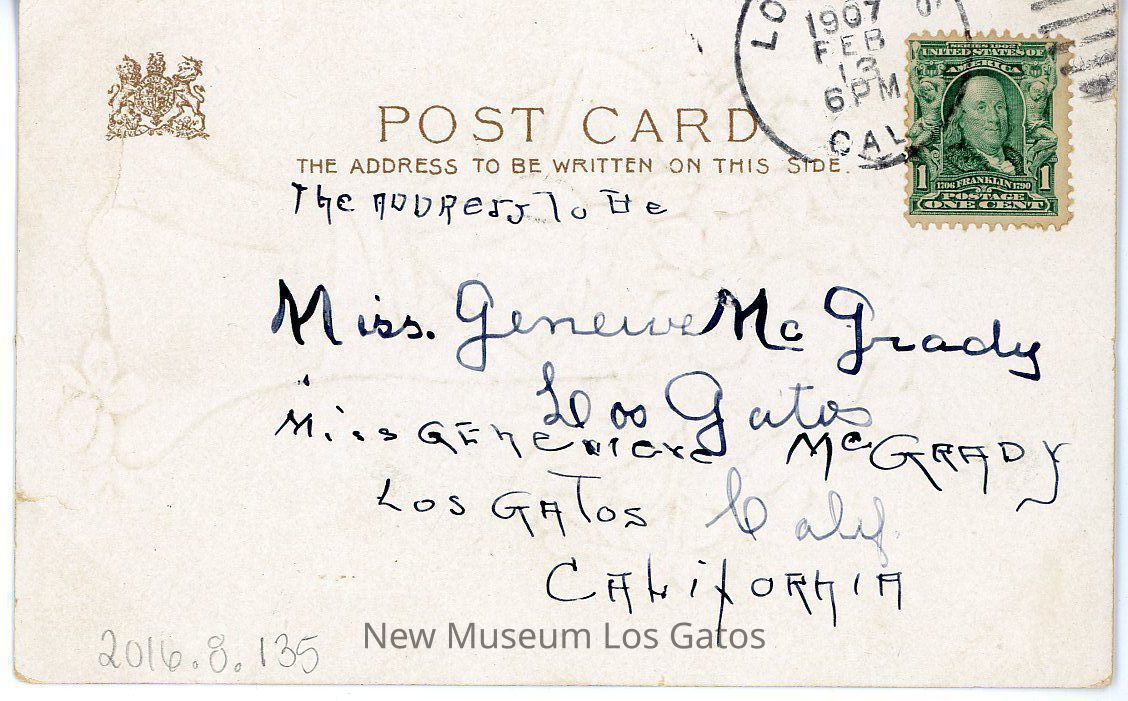 LO
1907
FEB
13
6 PM
CAL
SERIES 1902
UNITED STATES OF
AMERICA
1 1706 FRANKLIN 1790 1
POSTAGE
ONE CENT
POST CARD
THE ADDRESS TO BE WRITTEN ON THIS SIDE.
The ADDRess To Be
Miss. Genevieve Mc Grady
Los Gatos
Miss GENEvieve McGRADy
Los GATos
Calif.
CALifORNIA
2016.8.135
New Museum Los Gatos